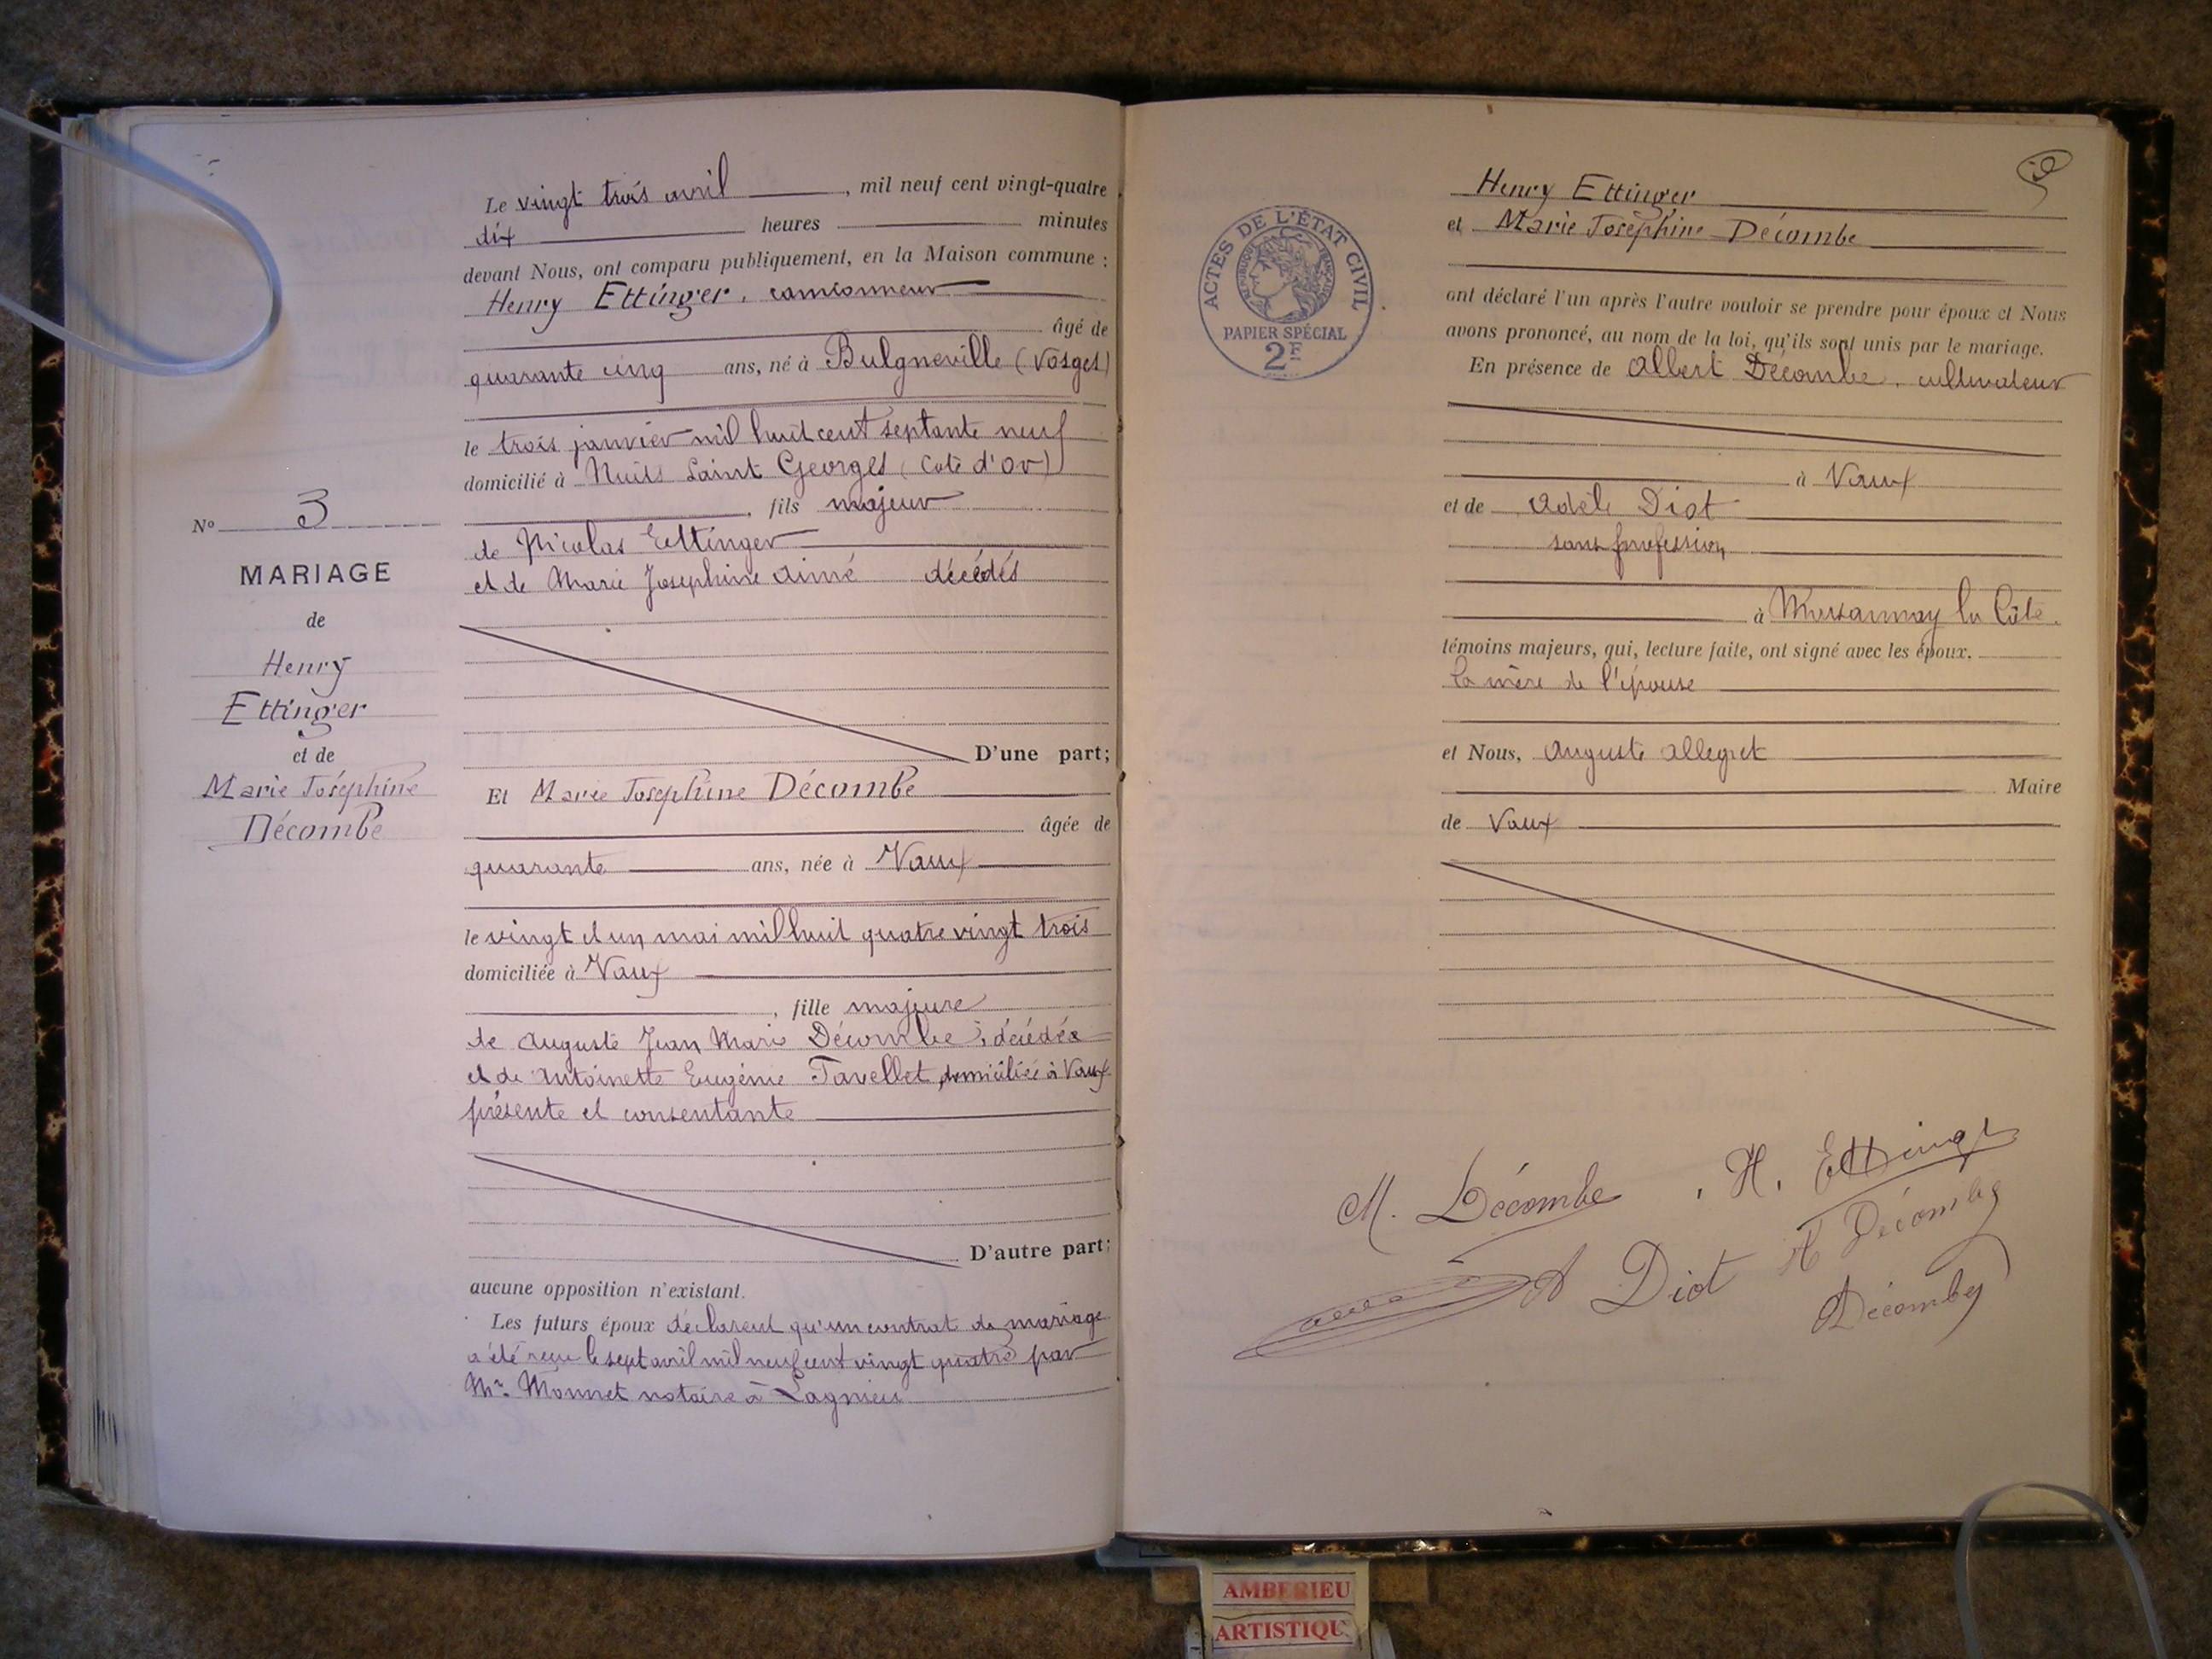 Le vingt trois avril, mil neuf cent vingt-quatre
dix heures minutes
devant Nous, ont comparu publiquement, en la Maison commune :
Henry Ettinger, camionneur
âgé de
quarante cinq ans, né à Bulgneville (Vosges)
le trois janvier mil huit cent septante neuf
domicilié à Nuits Saint Georges (Cote d'Or)
, fils majeur
de Nicolas Ettinger
et de Marie Josephine Aimé décédés
D'une part;
Et Marie Josephine Décombe
âgée de
quarante ans, née à Vaux
le vingt et un mai mil huit quatre vingt trois
domiciliée à Vaux
, fille majeure
de Auguste Jean Marie Décombe, décédé
et de Antoinette Eugénie Tavellet, domiciliée à Vaux
présente et consentante
D'autre part;
aucune opposition n'existant.
Les futurs époux déclarent qu'un contrat de mariage
a été reçu le sept avril mil neuf cent vingt quatre par
Mr. Monnet notaire à Lagnieu
No 3
MARIAGE
de
Henry
Ettinger
et de
Marie Joséphine
Décombe
ACTES DE L'ÉTAT CIVIL
RÉPUBLIQUE FRANÇAISE
PAPIER SPÉCIAL
2F
Henry Ettinger
et Marie Joséphine Décombe
ont déclaré l'un après l'autre vouloir se prendre pour époux et Nous
avons prononcé, au nom de la loi, qu'ils sont unis par le mariage.
En présence de Albert Décombe, cultivateur
à Vaux
et de Adèle Diot
sans profession
à la Côte.
témoins majeurs, qui, lecture faite, ont signé avec les époux.
la mère de l'épouse
et Nous, Auguste Allegret
Maire
de Vaux
M. Décombe. H. Ettinger
A Décombe
A Diot
Décombe
AMBERIEU
ARTISTIQU